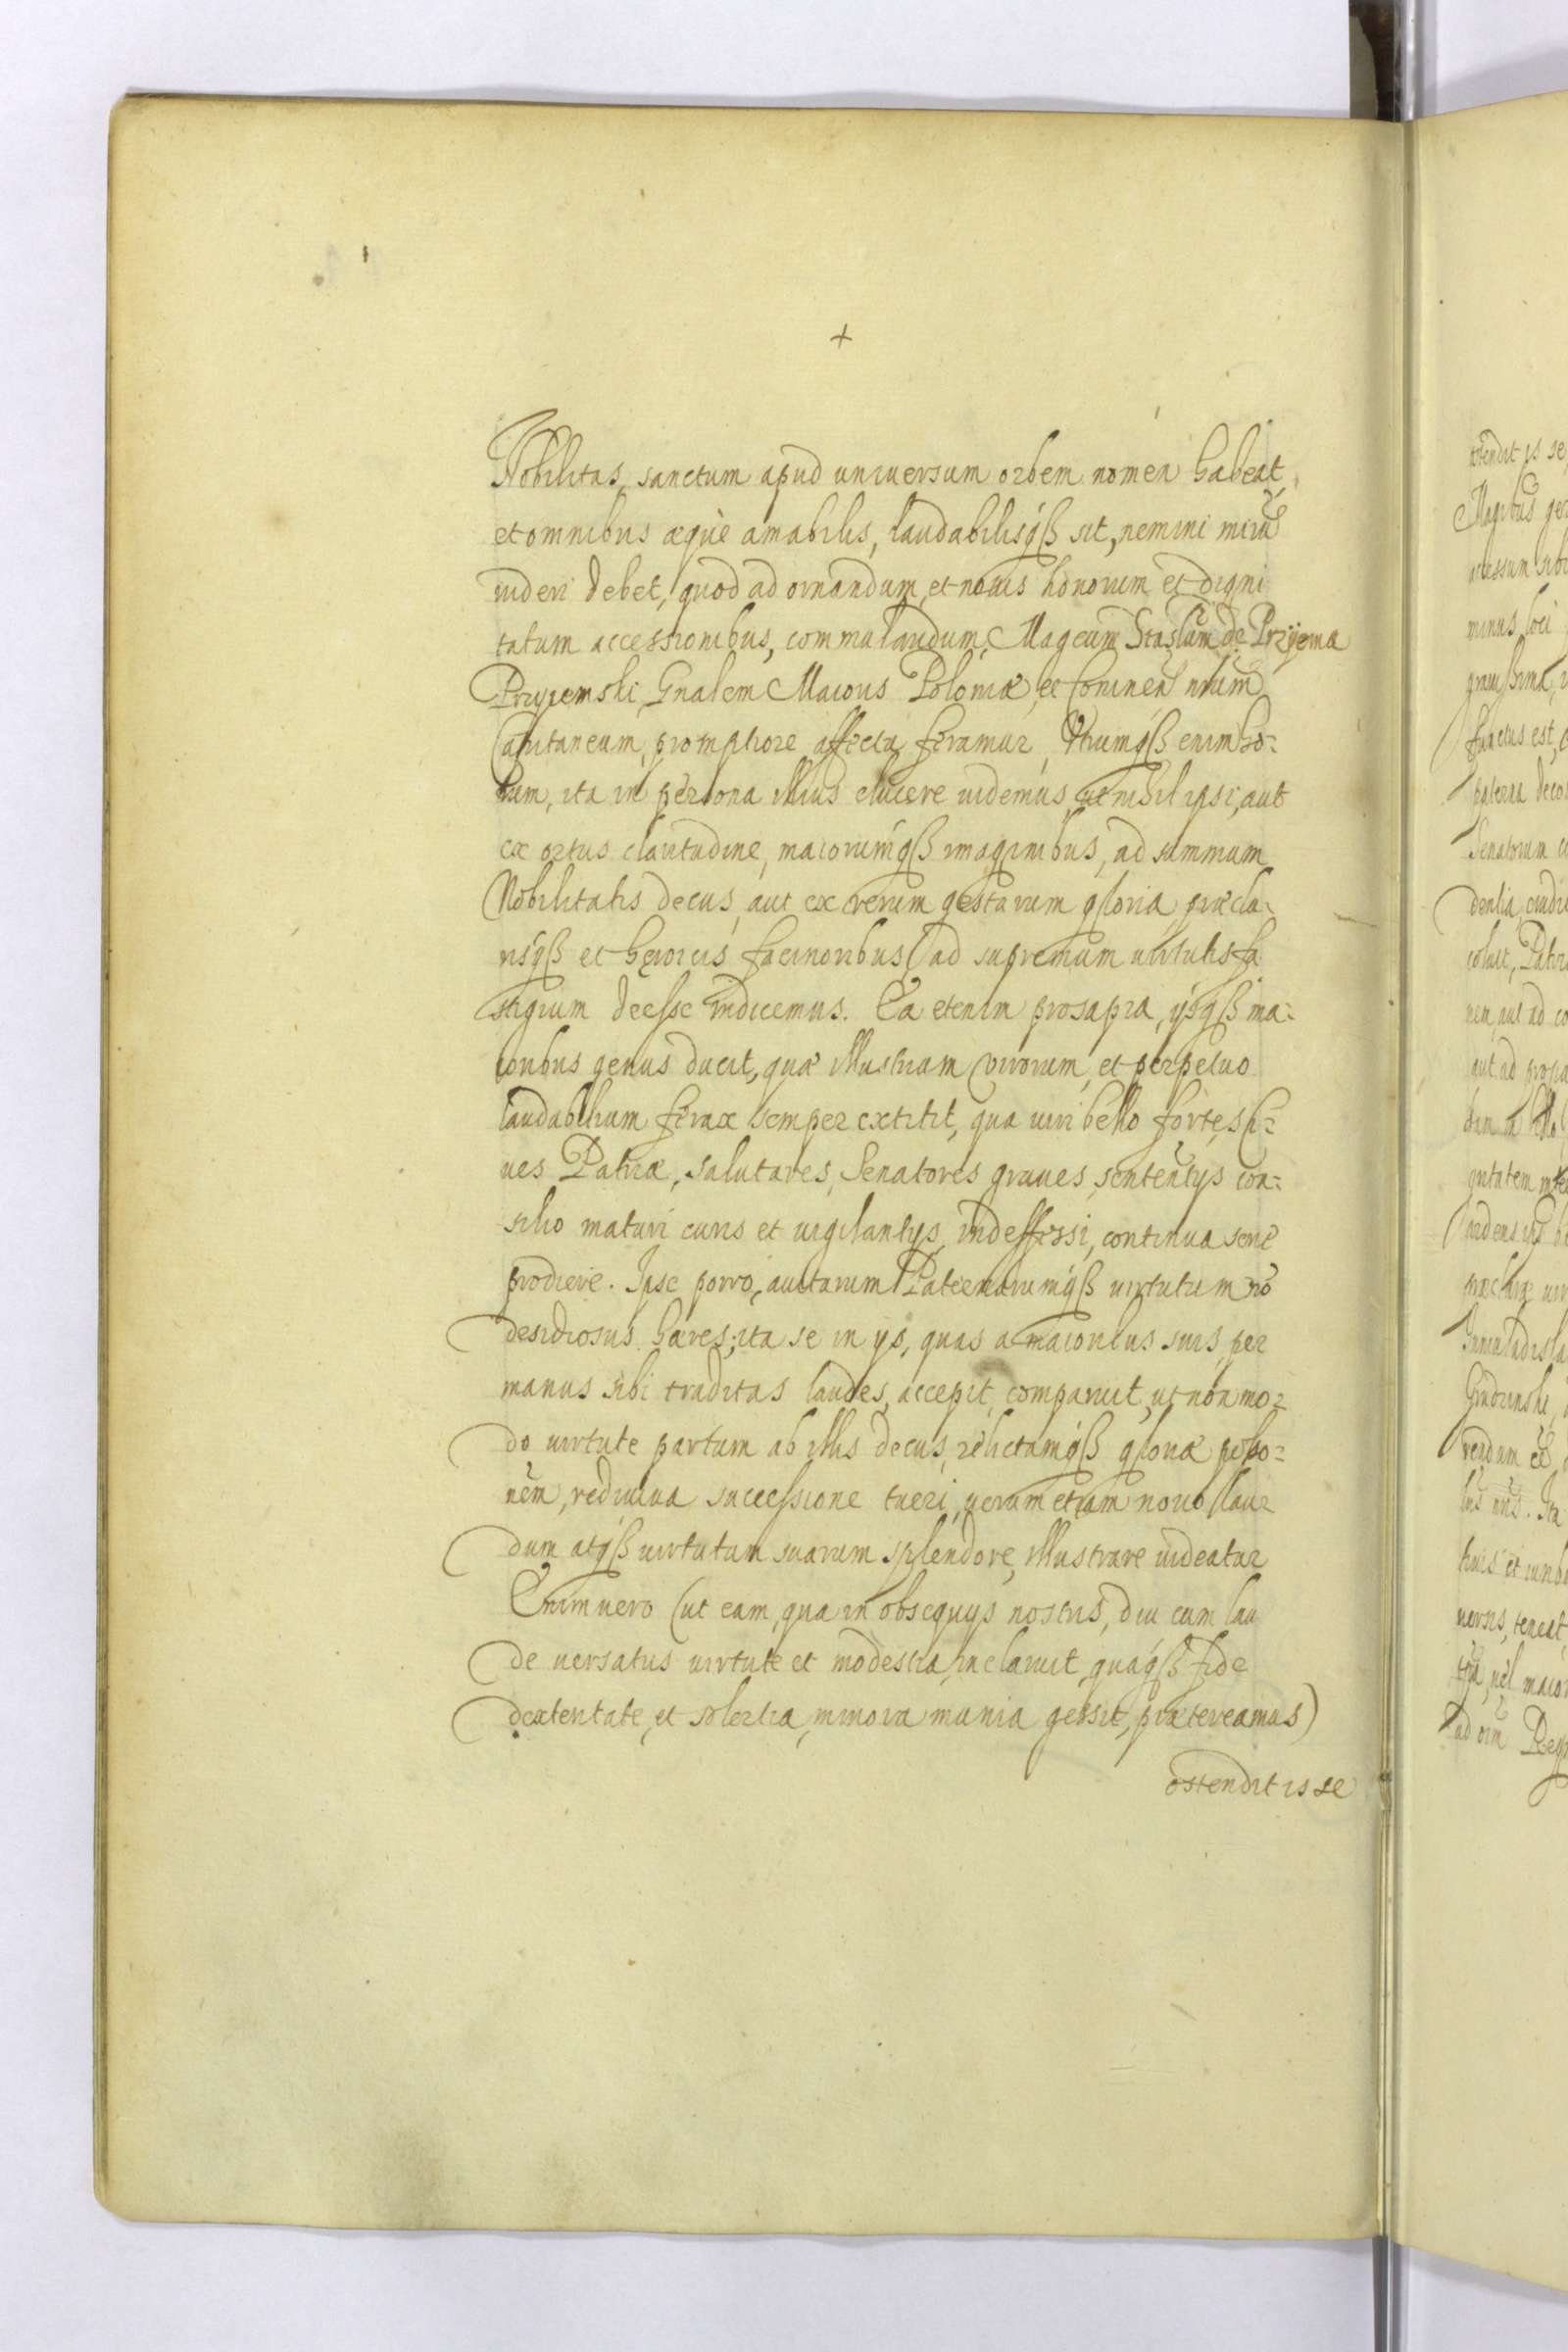 +
Nobilitas, sanctum apud universum orbem nomen habeat,
et omnibus æquè amabilis, laudabilisqß sit, nemini mirũ
uideri debet, quod ad ornandum, et nouis honorum et digni
tatum accessionibus, commulandum, Magcum Staslaum de Przÿema
Przyiemski, Gnalem Maioris Poloniæ, et Coninen nrum
Capitaneum, promptiore affectu feramur, Vtrumqß enim ho=
rum, ita in persona illius elucere uidemus, ut nihil ipsi, aut
ex ortus claritudine, maiorumqß imaginibus, ad summum
Nobilitatis decus, aut ex rerum gestarum gloria, præcla
risqß et heroicis facinoribus, ad supremum uirtutis fa
stigium deesse iudicemus. Ea etenim prosapia, ÿsqß ma=
ioribus genus ducit, quæ illustrium virorum, et perpetuo
laudabilium ferax semper extitit, qua uiri bello fortes, Ci=
ues Patriæ, salutares, Senatores graues, sententÿs con=
silio maturi curis et uigilantÿs, indeffessi, continua serie
prodiere. Ipse porro, auitarum Paternarumqß uirtutum nõ
desidiosus hæres, ita se in ÿs, quas a maioribus suis, per
manus sibi traditas laudes, accepit, comparuit, ut non mo=
do uirtute partum ab illis decus, relictamqß gloriæ posso=
nem, rediuiua successione tueri, uerum etiam nouo lau=
dum atqß uirtutum suarum splendore, illustrare uideatur
Enimuero (ut eam, qua in obsequÿs nostris, diu cum lau
de uersatus uirtute et modestia, inclaruit, quáqß fide
dexteritate, et solertia, minora munia gessit, prætereamus)
ostendit is se